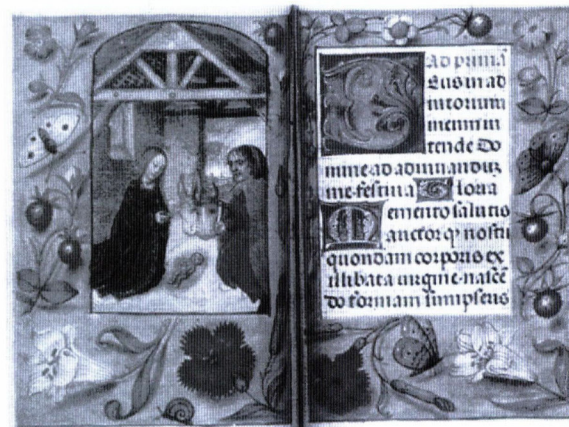 Ad prima
Eus in ad
iutorium
meum in
tende Do
mine ad adiuuanduz
me festina Gloria
Memento salutis
auctor q̄ nostri
quondam corporis ex
illibata uirgine nascē
do formam sumpseris